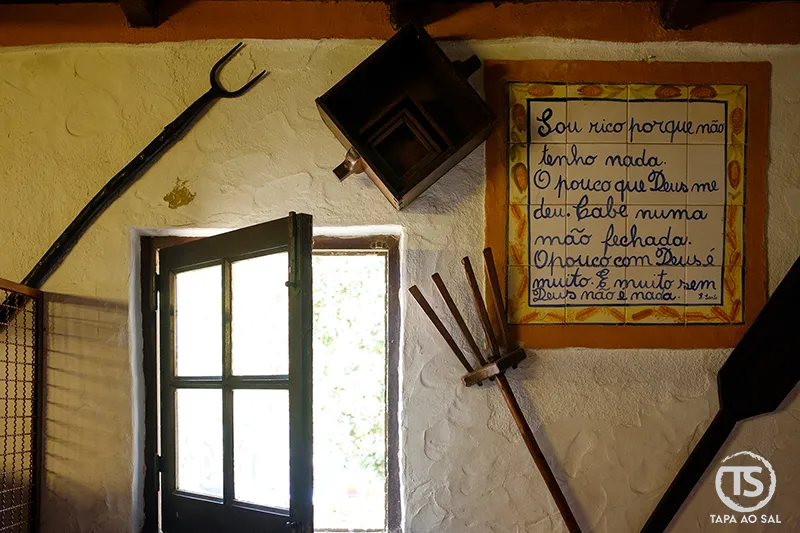 Sou rico porque não
tenho nada.
O pouco que Deus me
deu. Cabe numa
mão fechada.
O pouco com Deus é
muito. E muito sem
Deus não é nada.
TS
TAPA AO SAL